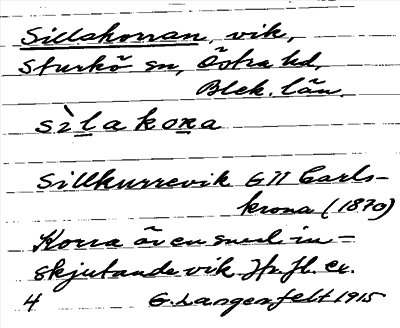 Sillakorran, vik,
Sturkö sn, Östra hd,
Blek. län.
sìlakora
Sillkurrevik GII Carls-
krona (1870)
Korra är en smal in-
skjutande vik. Jfr fl. ex.
4 G. Langenfelt 1915